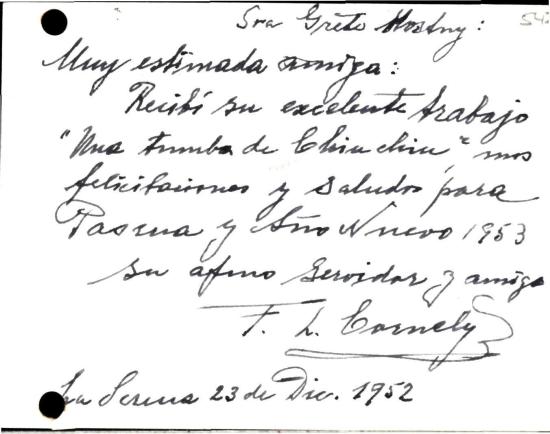 Sra Grete Mostny: 542
Muy estimada amiga:
Recibí su excelente trabajo
"Una tumba de Chiuchiu" mis
felicitaciones y saludos para
Pascua y Año Nuevo 1953
su afmo servidor y amigo
F. L. Cornely
La Serena 23 de Dic. 1952